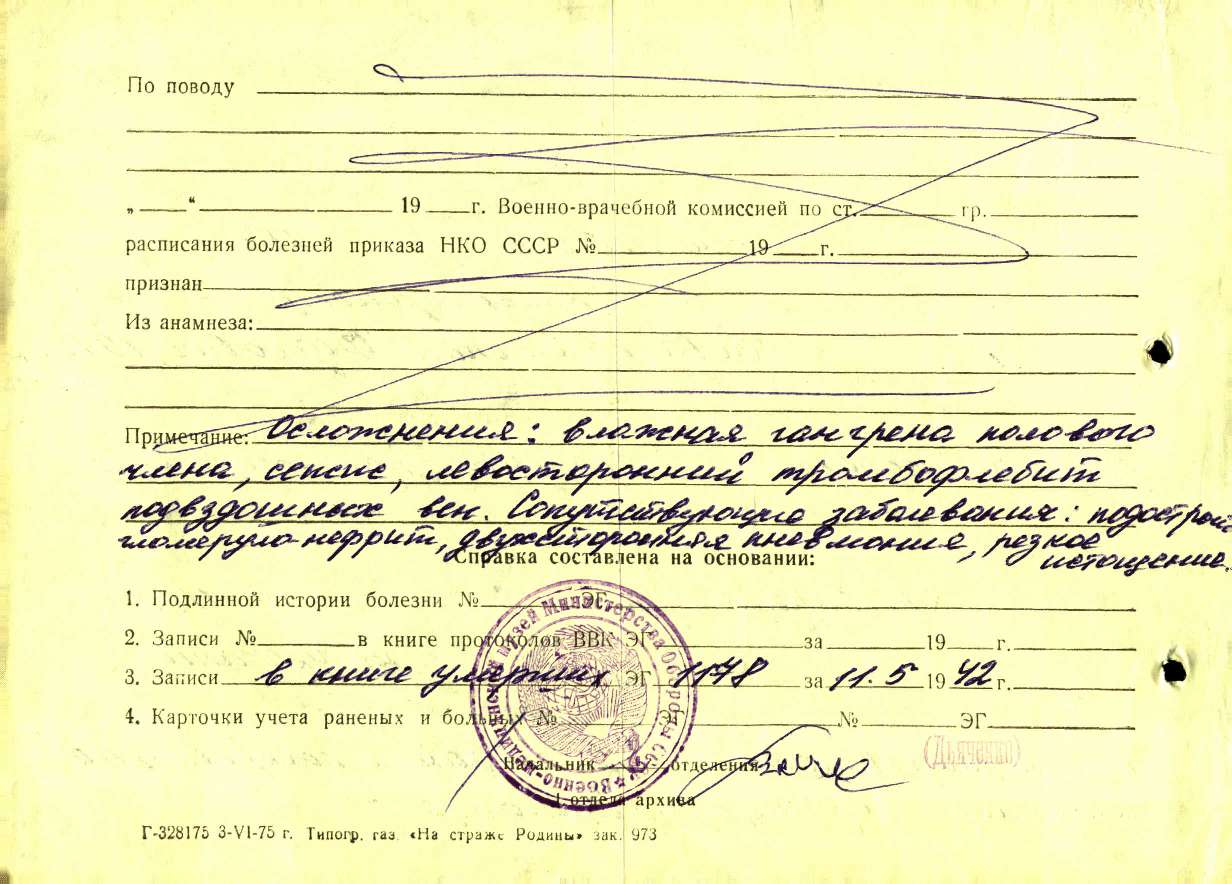 По поводу
„ “ 19 г. Военно-врачебной комиссией по ст. гр.
расписания болезней приказа НКО СССР № 19 г.
признан
Из анамнеза:
Примечание: Осложнения: влажная гангрена полового
члена, сепсис, левосторонний тромбофлебит
подвздошных вен. Сопутствующие заболевания: подострый
гломеруло-нефрит, двухсторонняя пневмония, резкое
истощение.
Справка составлена на основании:
1. Подлинной истории болезни № ЭГ
2. Записи № в книге протоколов ВВК ЭГ за 19 г.
3. Записи в книге умерших ЭГ 1178 за 11.5 1942 г.
4. Карточки учета раненых и больных № ЭГ № ЭГ
Военно-медицинский музей Министерства Обороны СССР
Начальник отделения
(Дьяченко)
1 отдела архива
Г-328175 3-VI-75 г. Типогр. газ. «На страже Родины» зак. 973